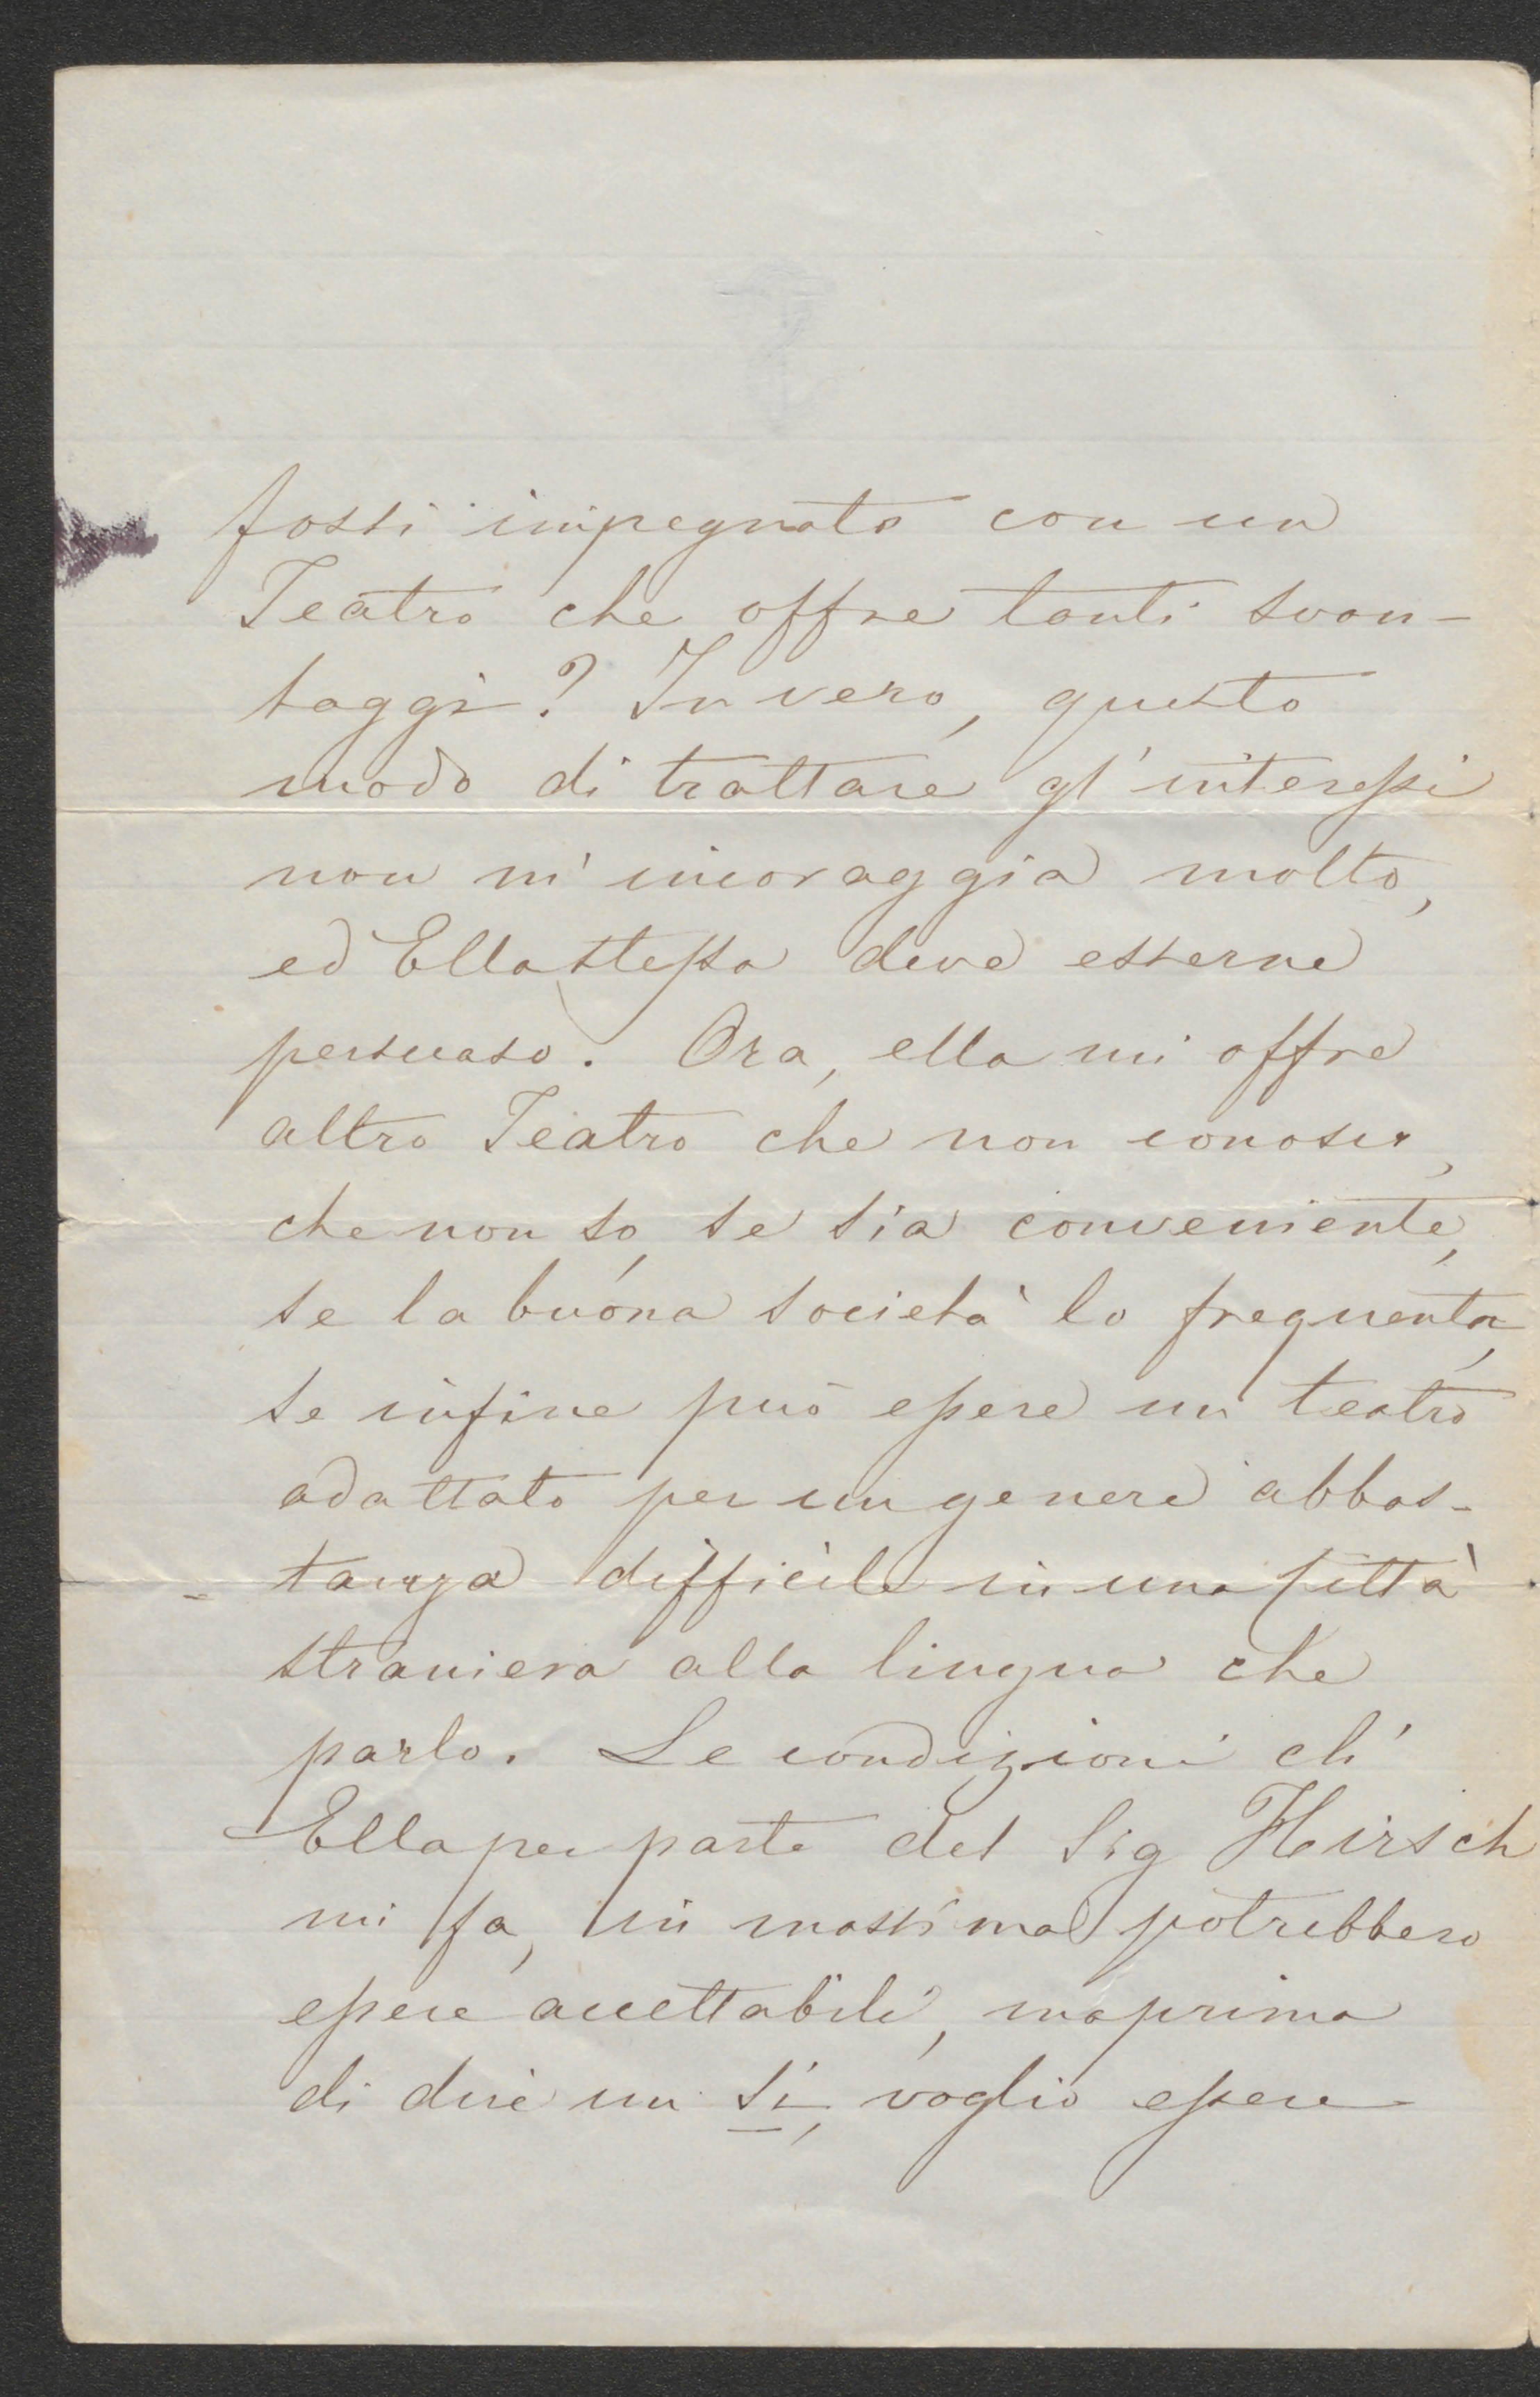 fossi impegnato con un
Teatro che offre tanti svan-
taggi? In vero, questo
modo di trattare gl'interessi
non m'incoraggia molto,
ed Ella stessa deve esserne
persuaso. Ora, ella mi offre
altro Teatro che non conosco,
che non so, se sia conveniente,
se la buona società lo frequenta,
se infine può essere un teatro
adattato per un genere abbas-
tanza difficile in una città
straniera alla lingua che
parlo. Le condizioni ch'
Ella per parte del Sig Hirsch
mi fa, in massima potrebbero
essere accettabili, ma prima
di dire un sì, voglio essere